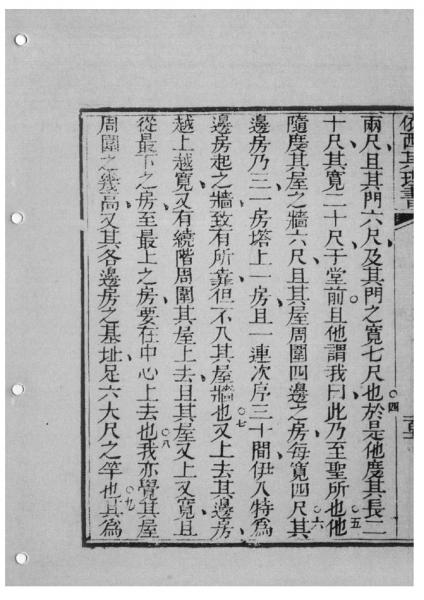 兩尺且其門六尺及其門之寬七尺也○四於是他度其長二
十尺其寬二十尺于堂前且他謂我曰此乃至聖所也○五他
隨度其屋之牆六尺且其屋周圍四邊之房每寬四尺○六其
邊房乃三一房塔上一房且一連次序三十間伊入特爲
邊房起之牆致有所靠但不入其屋牆也○七又上去其邊房
越上越寬又有繞階周圍其屋上去且其屋又上又寬且
從最下之房至最上之房要在中心上去也○八我亦覺其屋
周圍之幾高又其各邊房之基址足六大尺之竿也○九其爲